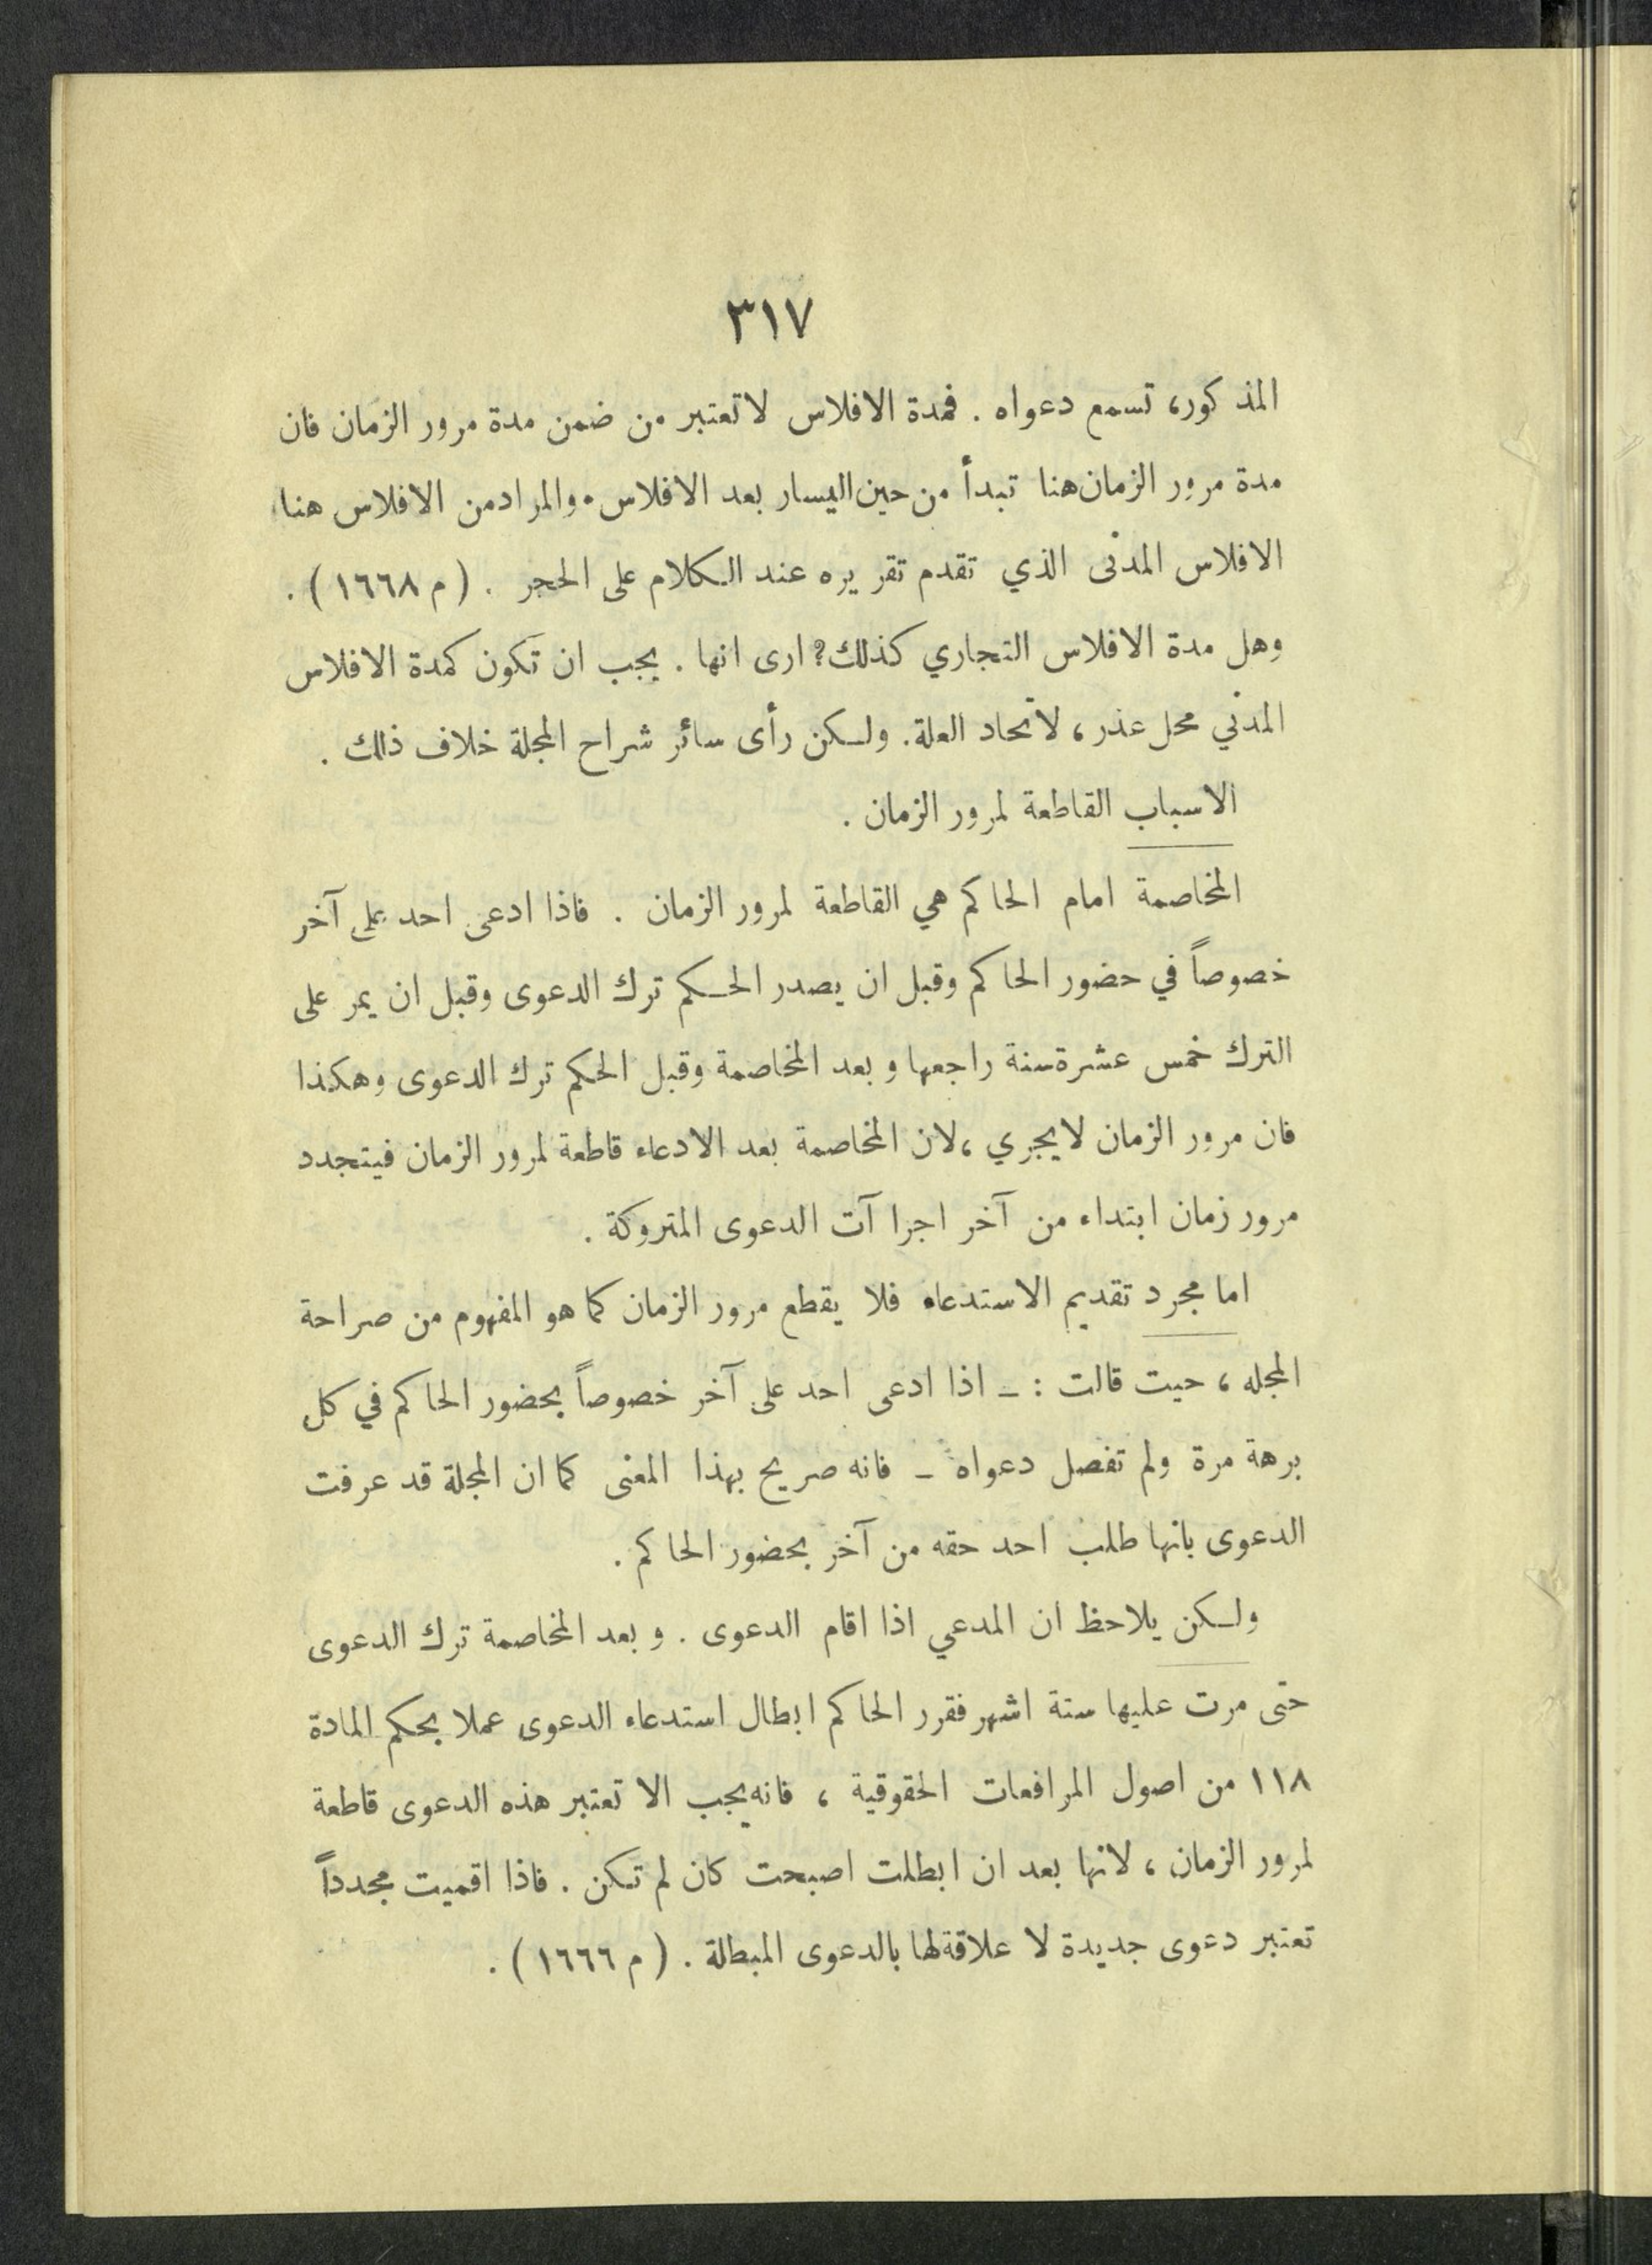 ٣١٧
المذكور، تسمع دعواه . فمدة الافلاس لا تعتبر من ضمن مدة مرور الزمان فان
مدة مرور الزمان هنا تبدأ من حين اليسار بعد الافلاس. والمراد من الافلاس هنا
الافلاس المدنى الذي تقدم تقريره عند الكلام على الحجر . ( م ١٦٦٨ ) .
وهل مدة الافلاس التجاري كذلك؟ ارى انها . يجب ان تكون كمدة الافلاس
المدني محل عذر، لاتحاد العلة. ولكن رأى سائر شراح المجلة خلاف ذلك .
الاسباب القاطعة لمرور الزمان .
المخاصمة امام الحاكم هي القاطعة لمرور الزمان . فاذا ادعى احد على آخر
خصوصاً في حضور الحاكم وقبل ان يصدر الحكم ترك الدعوى وقبل ان يمر على
الترك خمس عشرة سنة راجعها و بعد المخاصمة وقبل الحكم ترك الدعوى وهكذا
فان مرور الزمان لا يجري ، لان المخاصمة بعد الادعاء قاطعة لمرور الزمان فيتجدد
مرور زمان ابتداء من آخر اجرا آت الدعوى المتروكة .
اما مجرد تقديم الاستدعاء فلا يقطع مرور الزمان كما هو المفهوم من صراحة
المجله ، حيت قالت : ـ اذا ادعى احد على آخر خصوصاً بحضور الحاكم في كل
برهة مرة ولم تفصل دعواه ـ فانه صريح بهذا المعنى كما ان المجلة قد عرفت
الدعوى بانها طلب احد حقه من آخر بحضور الحاكم .
ولكن يلاحظ ان المدعي اذا اقام الدعوى . و بعد المخاصمة ترك الدعوى
حتى مرت عليها ستة اشهر فقرر الحاكم ابطال استدعاء الدعوى عملا بحكم المادة
١١٨ من اصول المرافعات الحقوقية ، فانه يجب الا تعتبر هذه الدعوى قاطعة
لمرور الزمان ، لانها بعد ان ابطلت اصبحت كان لم تكن . فاذا اقميت مجدداً
تعتبر دعوى جديدة لا علاقة لها بالدعوى المبطالة . ( م ١٦٦٦ ) .